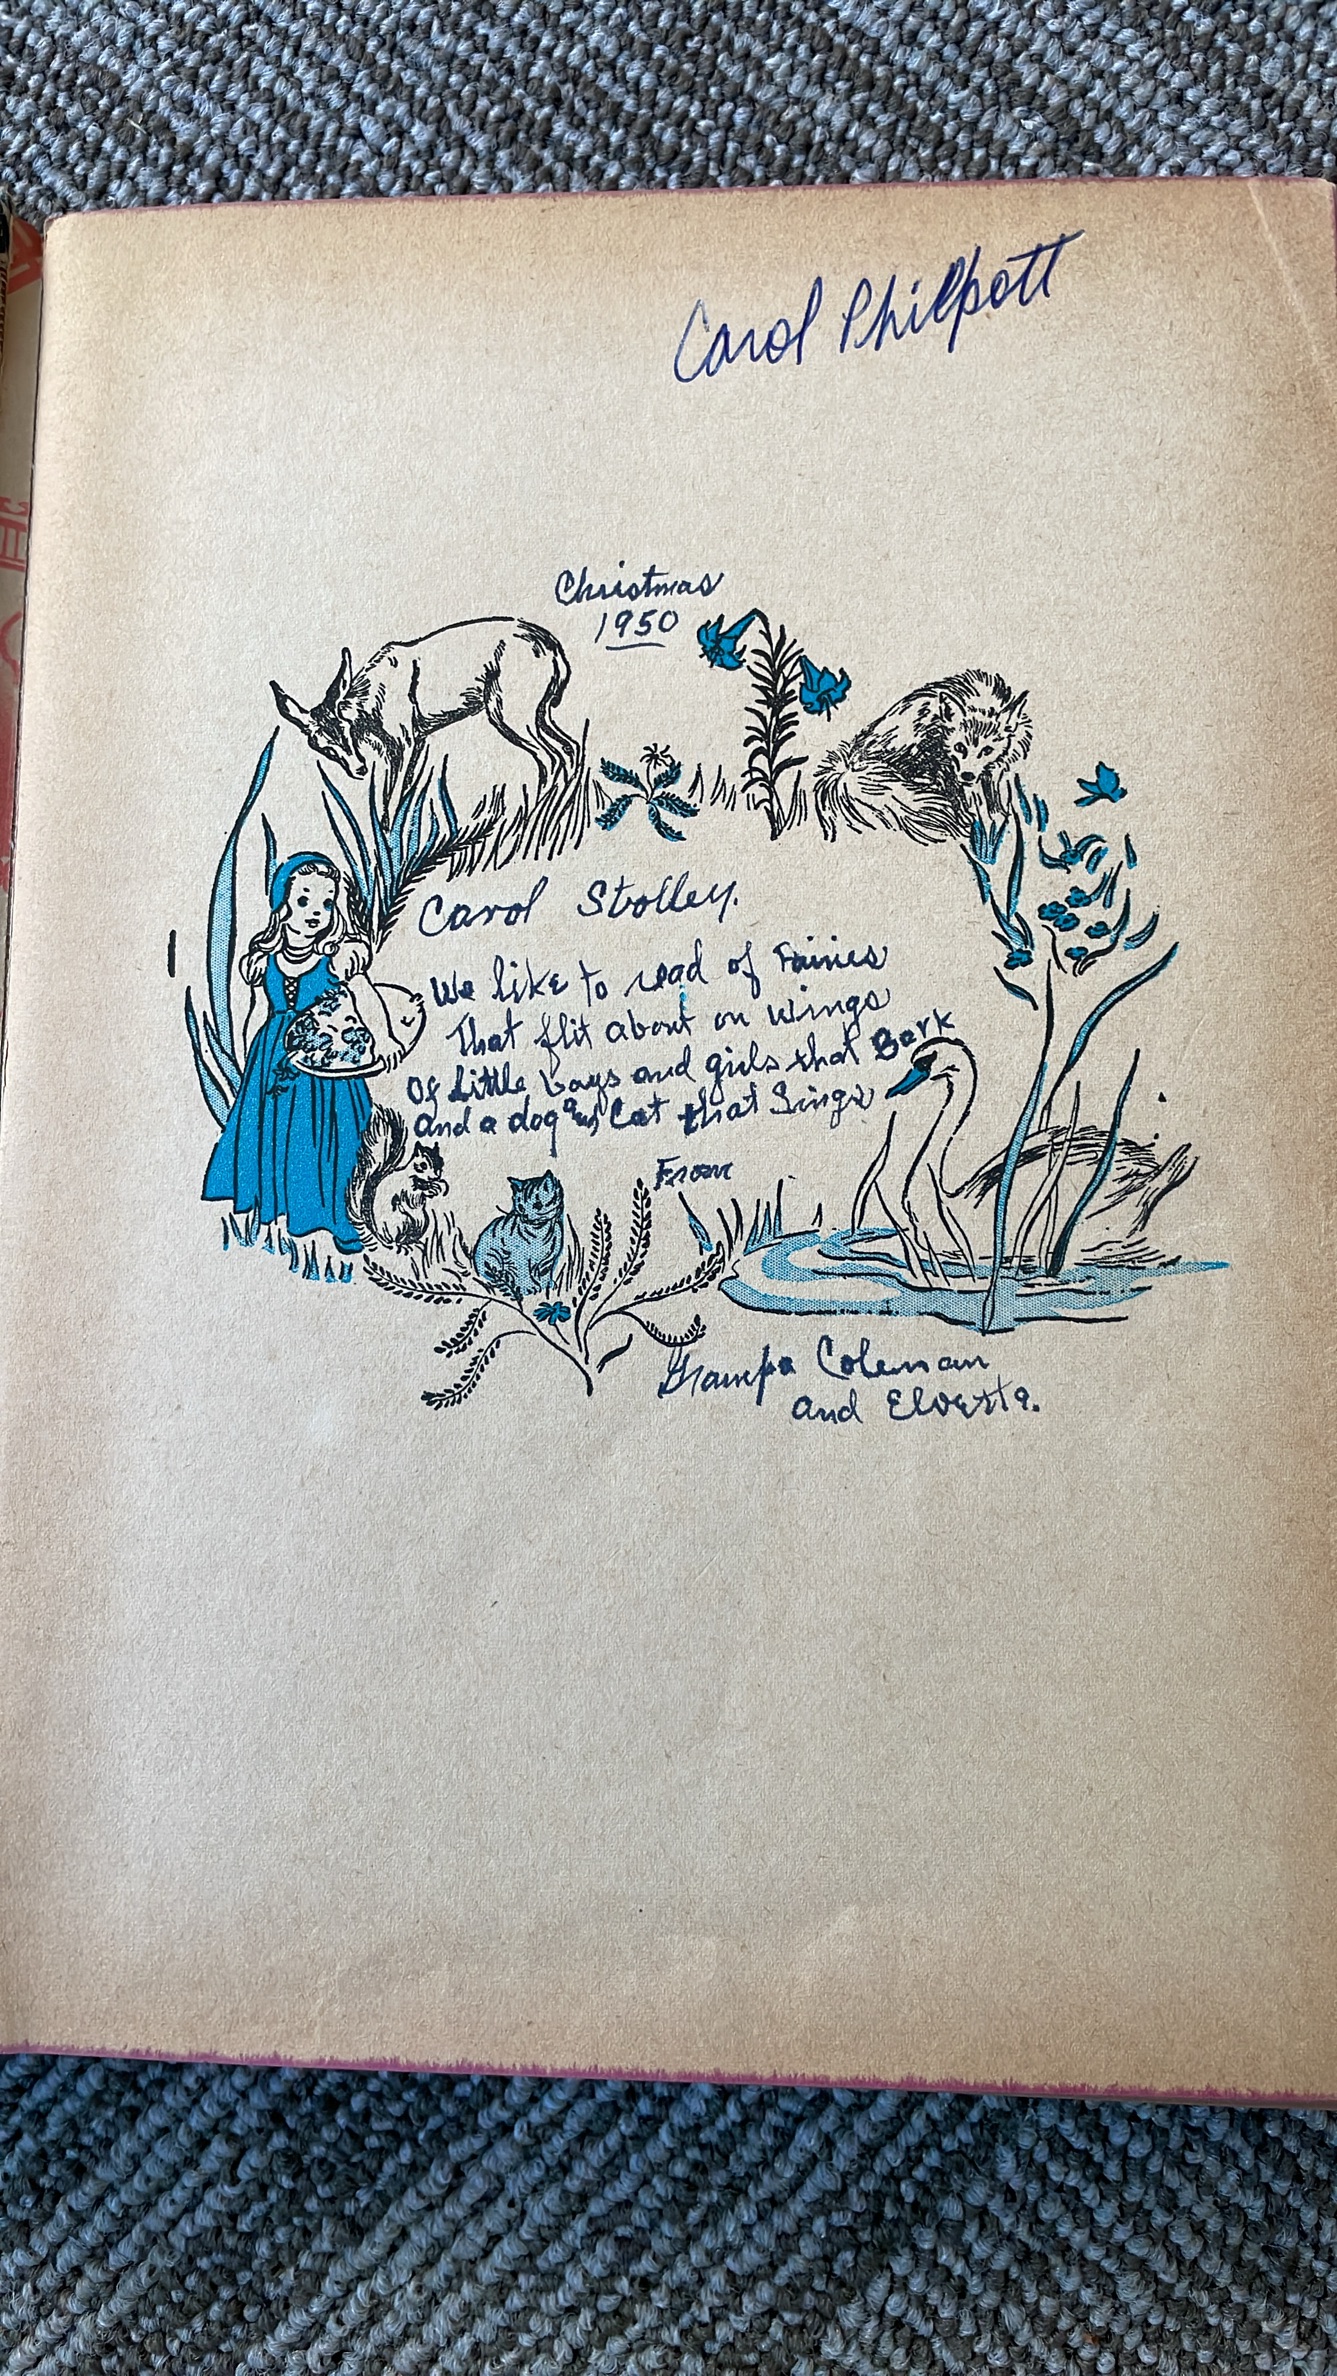 Carol Philpott
Christmas
1950
Carol Stolley.
We like to read of Fairies
That flit about on wings
Of Little boys and girls that Bark
And a dog and Cat that Sings
From
Grampa Coleman
and Elvetta.